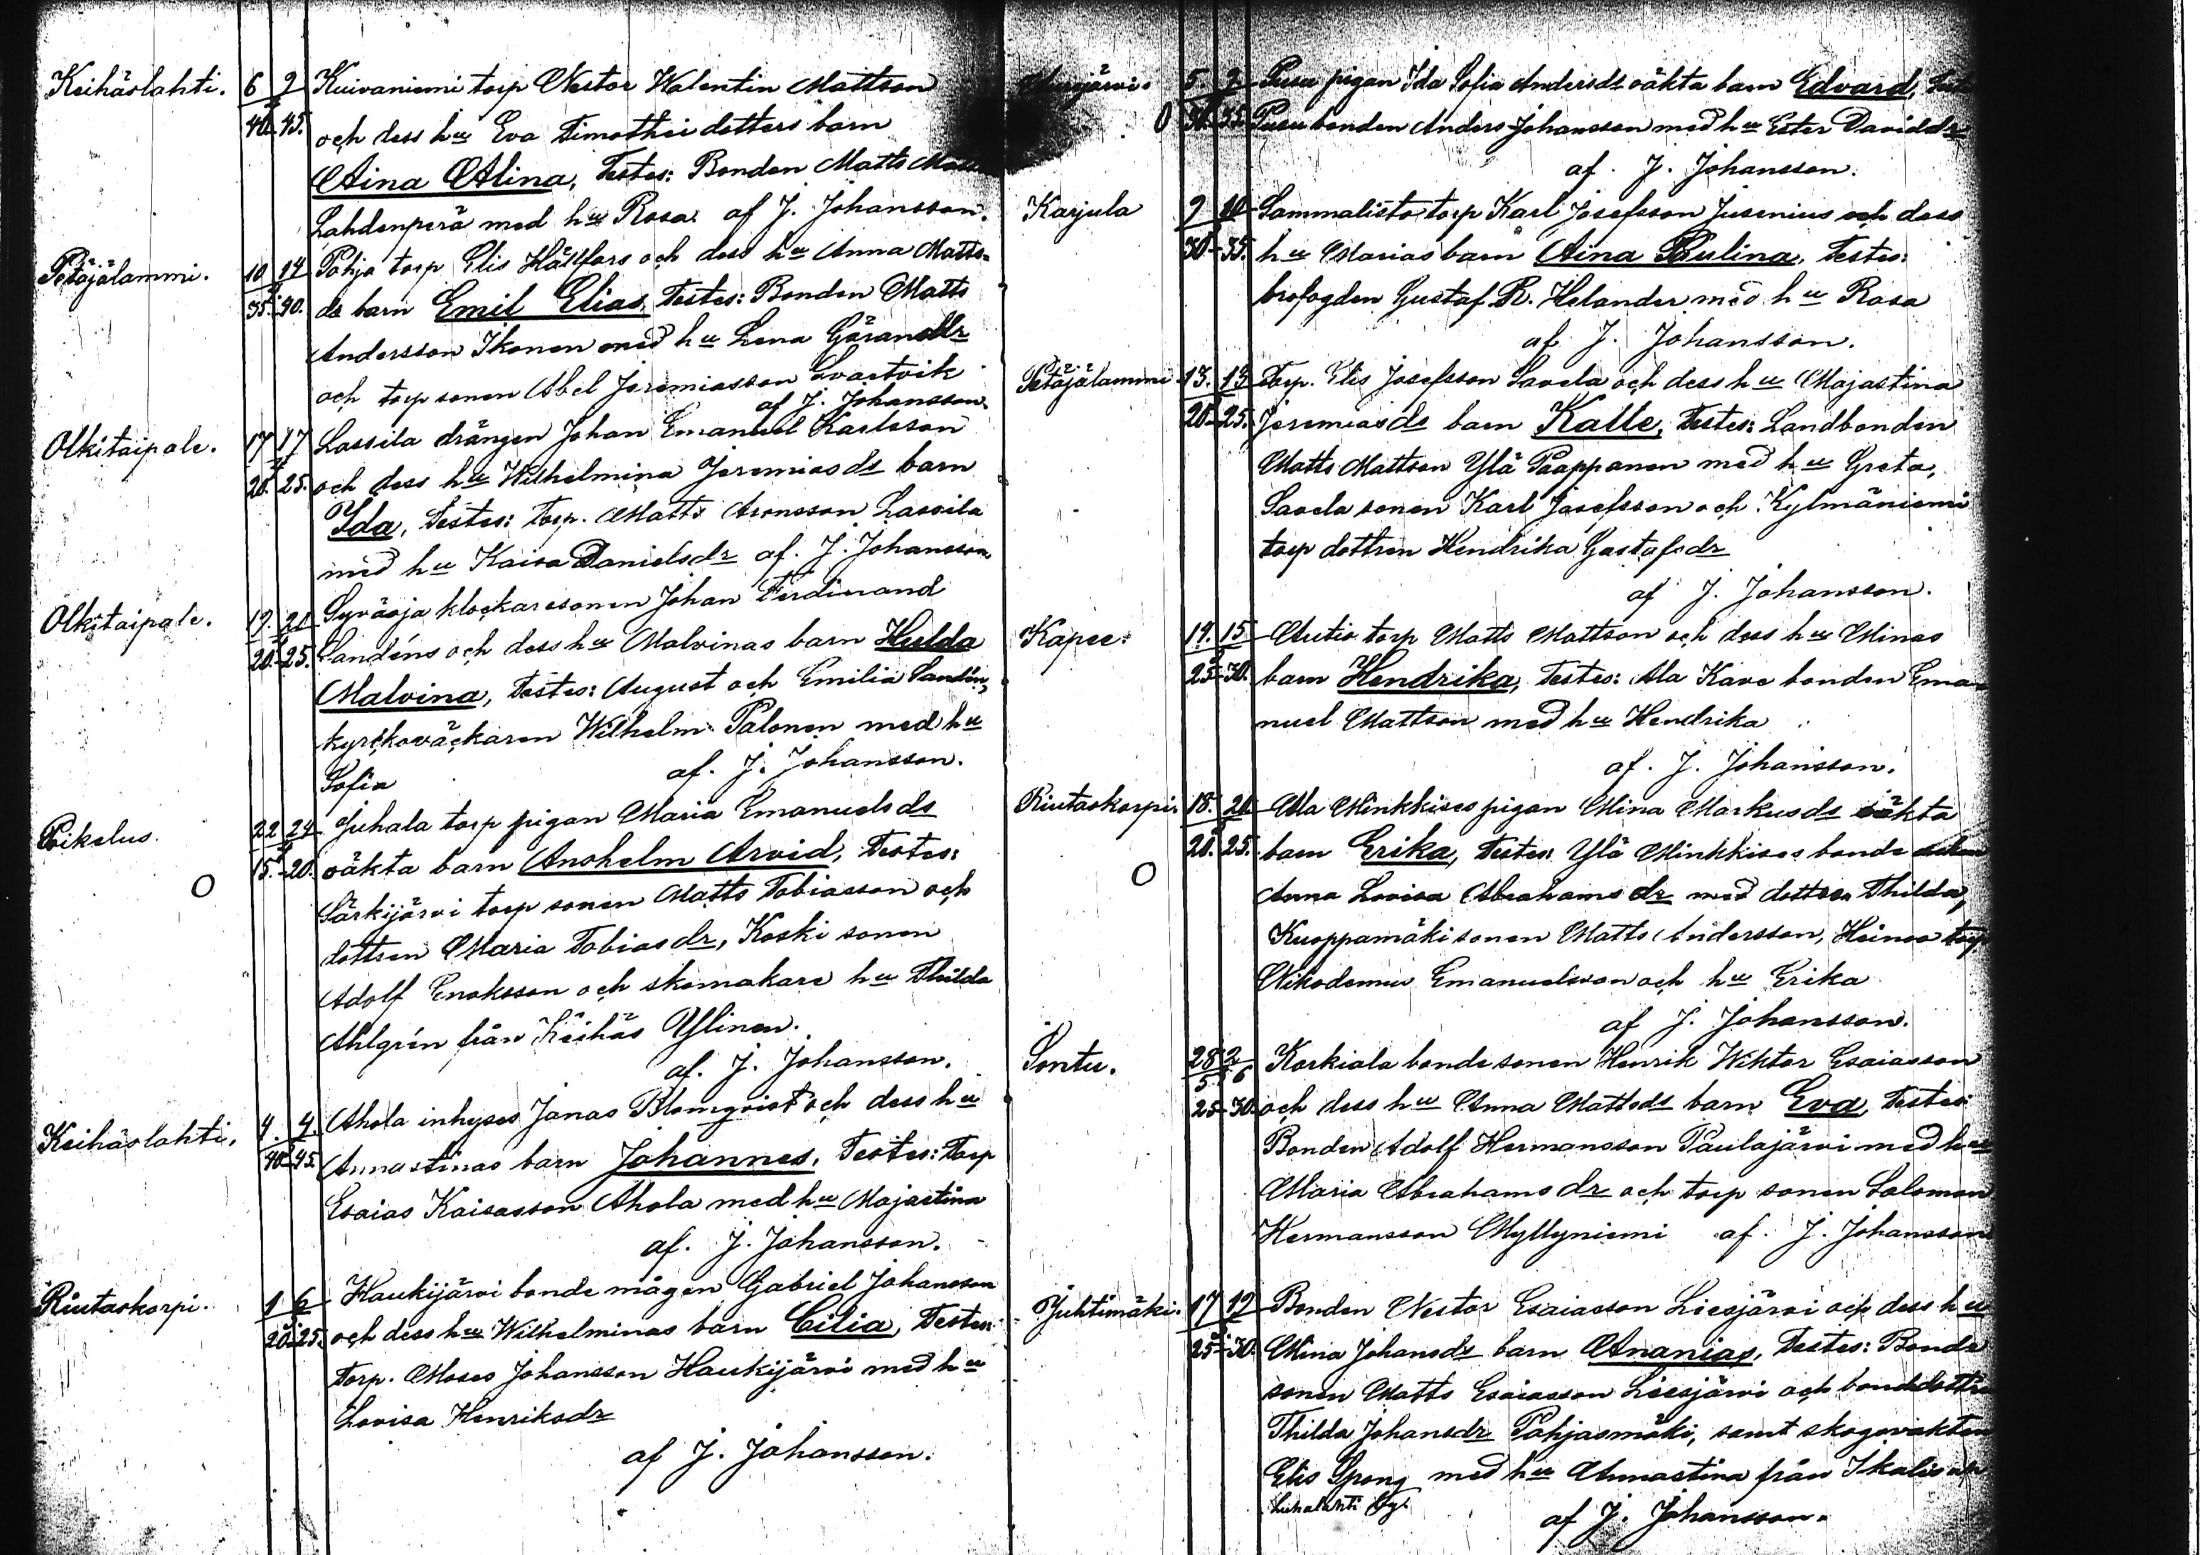 Keihäslahti. 6 9 Kuivaniemi torp Nestor Walentin Mattson
40-45. och dess hu Eva Timotheidotters barn
Aina Alina, Testes: Bonden Matts
Lahdenperä med hu Rosa. af J. Johansson.
Petäjälammi. 10 14 Pohja torp Elis Hällfors och dess hu Anna Matts-
35-40. ds barn Emil Elias, Testes: Bonden Matts
Andersson Ikonen med hu Lena Göransdr
och torp sonen Abel Jeremiasson Svartvik
af J. Johansson.
Olkitaipale. 17 17 Lassila drängen Johan Emanuel Karlsson
20-25. och dess hu Wilhelmina Jeremiasds barn
Ida, Testes: Torp. Matts Aronsson Lassila
med hu Kaisa Danielsdr af. J. Johansson
Olkitaipale. 19. 21 Syväoja klockaresonen Johan Ferdinand
20-25. Sandéns och dess hu Malvinas barn Hulda
Malvina, Testes: August och Emilia Sandén,
kyrkoväckaren Wilhelm Palonen med hu
Sofia af. J. Johansson.
Poikelus. 22 24 Juhala torp pigan Maria Emanuelsds
15-20. oäkta barn Anshelm Arvid, Testes:
O Särkijärvi torp sonen Matts Tobiasson och
dottren Maria Tobiasdr, Koski sonen
Adolf Enoksson och skomakare hu Thilda
Ahlgrén från Keihäs Ylinen.
af. J. Johansson.
Keihäslahti. 4. 4. Ahola inhyses Jonas Blomqvist och dess hu
40-45. Annastinas barn Johannes, Testes: Torp
Esaias Kaisasson Ahola med hu Majastina
af. J. Johansson.
Riutaskorpi. 1 6 Haukijärvi bonde mågen Gabriel Johansson
20-25. och dess hu Wilhelminas barn Cilia, Testes:
Torp. Moses Johansson Haukijärvi med hu
Lovisa Henriksdr
af J. Johansson.
5. 7 Pusu pigan Ida Sofia Andersds oäkta barn Edvard,
O Pusu bonden Anders Johansson med hu Ester Daviddr
af. J. Johansson.
Karjula 9 10 Sammalisto torp Karl Josefsson Jusenius och dess
30-35. hu Marias barn Aina Paulina, Testes:
brofogden Gustaf R. Helander med hu Rosa
af J. Johansson.
Petäjälammi 13. 13 Torp. Elis Josefsson Savela och dess hu Majastina
20-25. Jeremiasds barn Kalle, Testes: Landbonden
Matts Mattson Ylä Paappanen med hu Greta,
Savela sonen Karl Josefsson och Kylmäniemi
torp dottren Hendrika Gustafsdr
af J. Johansson.
Kapee. 14. 15 Autio torp Matts Mattson och dess hu Minas
25-30. barn Hendrika, Testes: Ala Kave bonden Ema-
nuel Mattson med hu Hendrika
af. J. Johansson.
Riutaskorpi. 18. 20 Ala Minkkises pigan Mina Markusds oäkta
20-25. barn Erika, Testes: Ylä Minkkises bonde
O Anna Lovisa Abrahamsdr med dottren Thilda,
Kuoppamäki sonen Matts Andersson, Heinoo torp
Nikodemus Emanuelsson och hu Erika
af J. Johansson.
Sontu. 28/5 2/6 Korkiala bonde sonen Henrik Wiktor Esaiasson
25-30 och dess hu Anna Mattsds barn Eva, Testes:
Bonden Adolf Hermansson Paulajärvi med hu
Maria Abrahamsdr och torp sonen Salomon
Hermansson Myllyniemi af. J. Johansson
Juhtimäki. 17 19 Bonden Nestor Esaiasson Liesjärvi och dess hu
25-30. Mina Johansds barn Ananias, Testes: Bonde
sonen Matts Esaiasson Liesjärvi och bondedottr
Thilda Johansdr Pohjasmäki, samt skogsvakten
Elis Spong med hu Annastina från Ikalis
af J. Johansson.